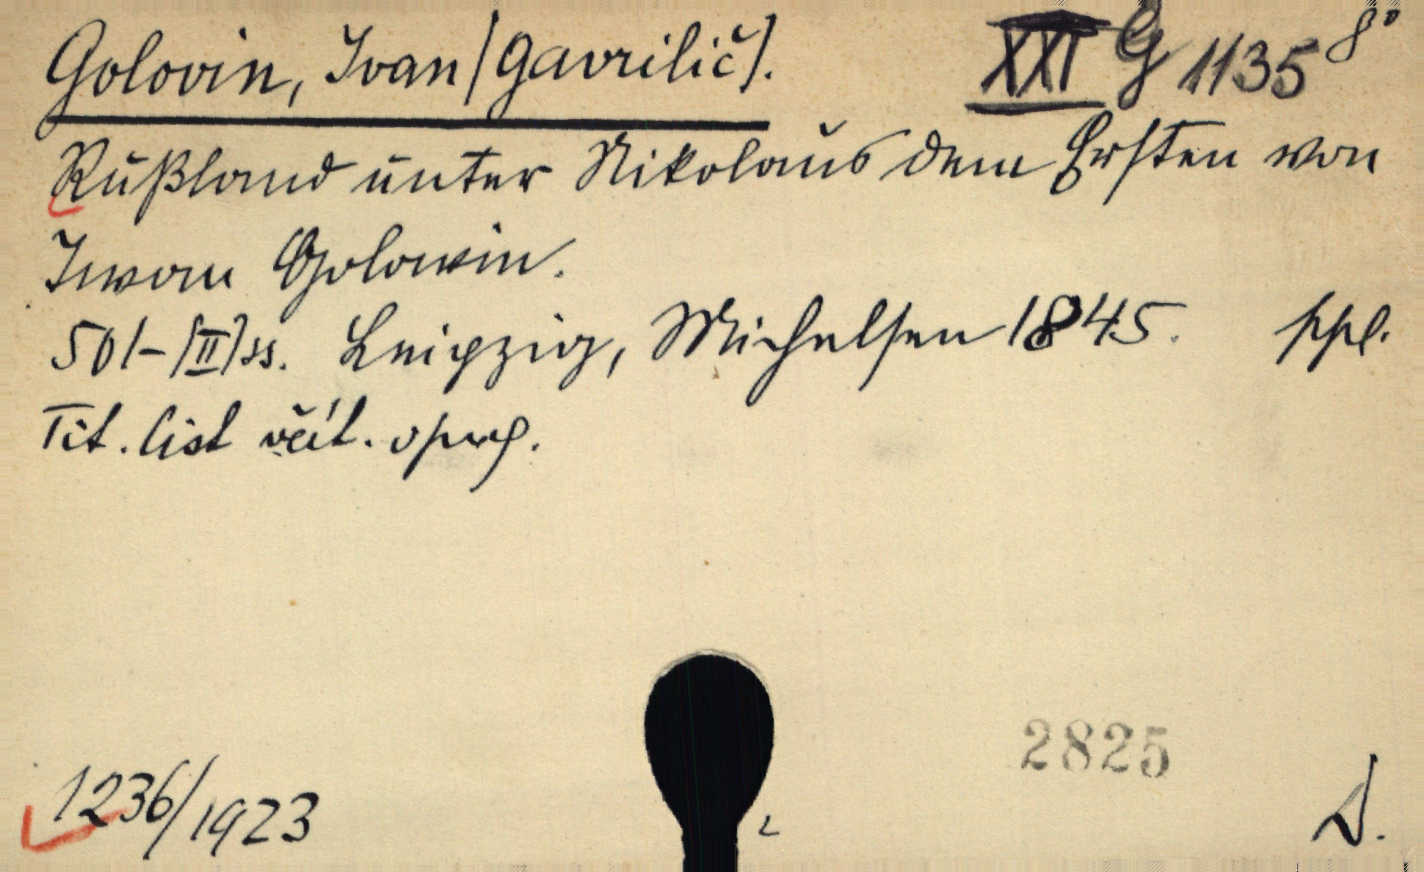 Golovin, Ivan (Gavrilič). XXI G 1135 8°
Rußland unter Nikolaus dem Ersten von
Iwan Golowin.
501-[II] ss. Leipzig, Michelsen 1845. ppl.
Tit. list
2825
1236/1923